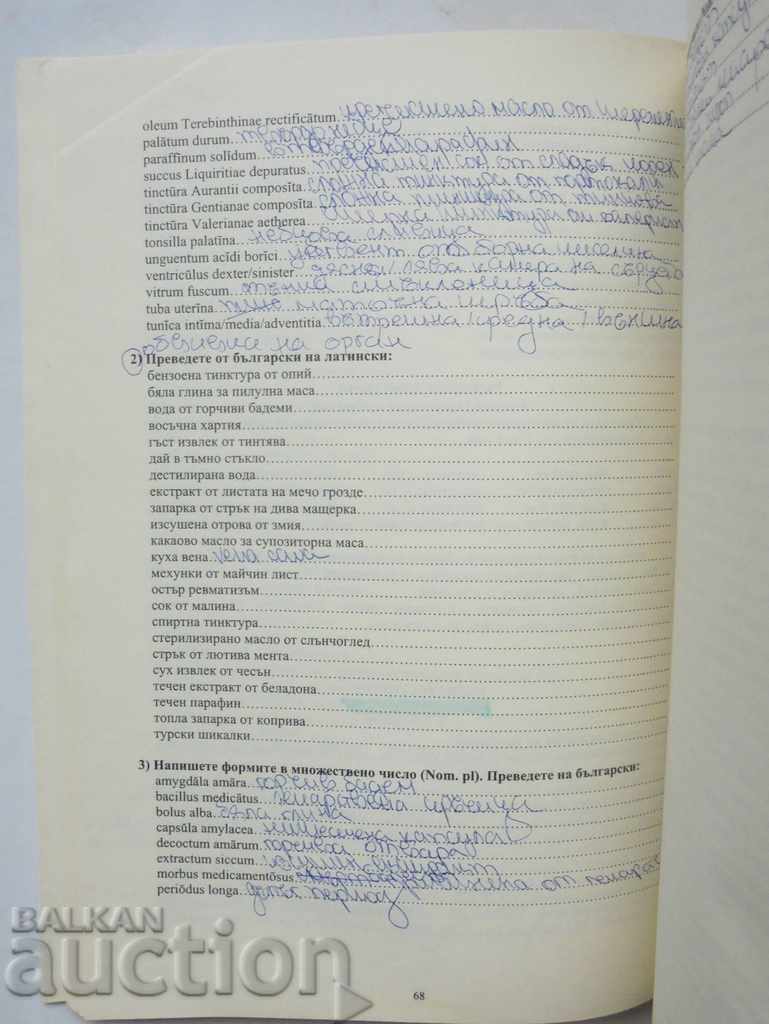 oleum Terebinthinae rectificātum пречистено масло от
palātum durum
paraffinum solĭdum
succus Liquiritiae depuratus пречистен сок от сладък
tinctūra Aurantii composĭta сложна тинктура от портокали
tinctūra Gentianae composĭta сложна от тинтява
tinctūra Valerianae aetherea етерна тинктура от
tonsilla palatīna небцова сливица
unguentum acĭdi borĭci унгвент от борна киселина
ventricŭlus dexter/sinister дясна / лява камера на сърцето
vitrum fuscum тъмна стъкленица
tuba uterīna маточна тръба
tunĭca intĭma/media/adventitia вътрешна / средна / външна
обвивка на орган
2) Преведете от български на латински:
бензоена тинктура от опий
бяла глина за пилулна маса
вода от горчиви бадеми
восъчна хартия
гъст извлек от тинтява
дай в тъмно стъкло
дестилирана вода
екстракт от листата на мечо грозде
запарка от стрък на дива мащерка
изсушена отрова от змия
какаово масло за супозиторна маса
куха вена vena cava
мехунки от майчин лист
остър ревматизъм
сок от малина
спиртна тинктура
стерилизирано масло от слънчоглед
стрък от лютива мента
сух извлек от чесън
течен екстракт от беладона
течен парафин
топла запарка от коприва
турски шикалки
3) Напишете формите в множествено число (Nom. pl). Преведете на български:
amygdăla amāra горчив бадем
bacillus medicātus лекарствена пръчица
bolus alba бяла глина
capsŭla amylacea нишестена капсула
decoctum amārum горчива отвара
extractum siccum
morbus medicamentōsus от
periŏdus longa дълъг период
68
BALKAN
auction